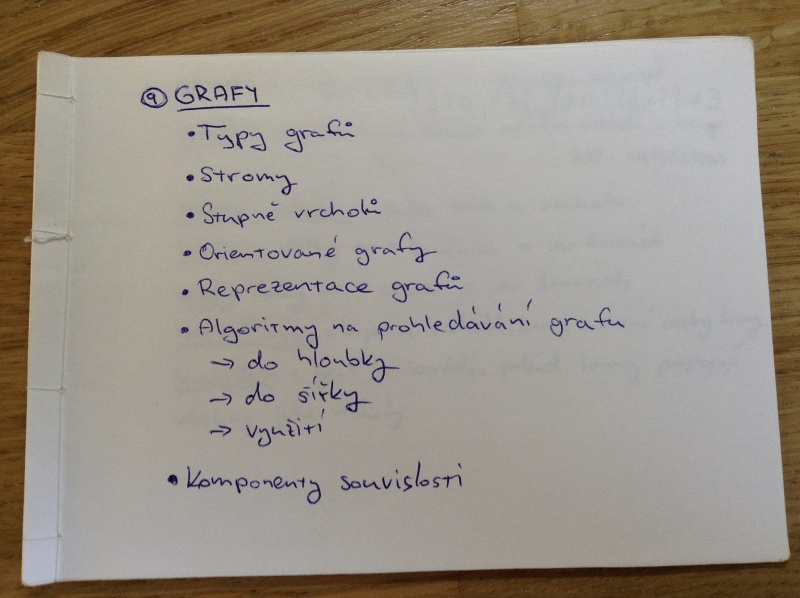 9 GRAFY
• Typy grafů
• Stromy
• Stupně vrcholů
• Orientované grafy
• Reprezentace grafů
• Algoritmy na prohledávání grafu
→ do hloubky
→ do šířky
→ využití
• Komponenty souvislosti